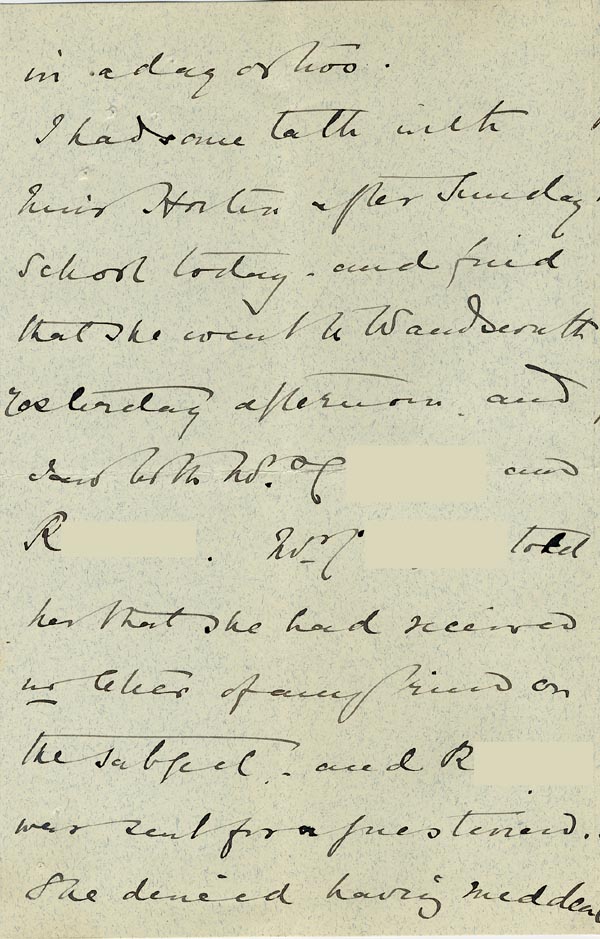 in a day or two.
I had some talk with
Miss Horton after Sunday
School today - and find
that she went to Wandsworth
yesterday afternoon and
saw both Mrs. C and
R . Mrs C told
her that she had received
no letter of any kind on
the subject - and R
was sent for & questioned.
She denied having meddled